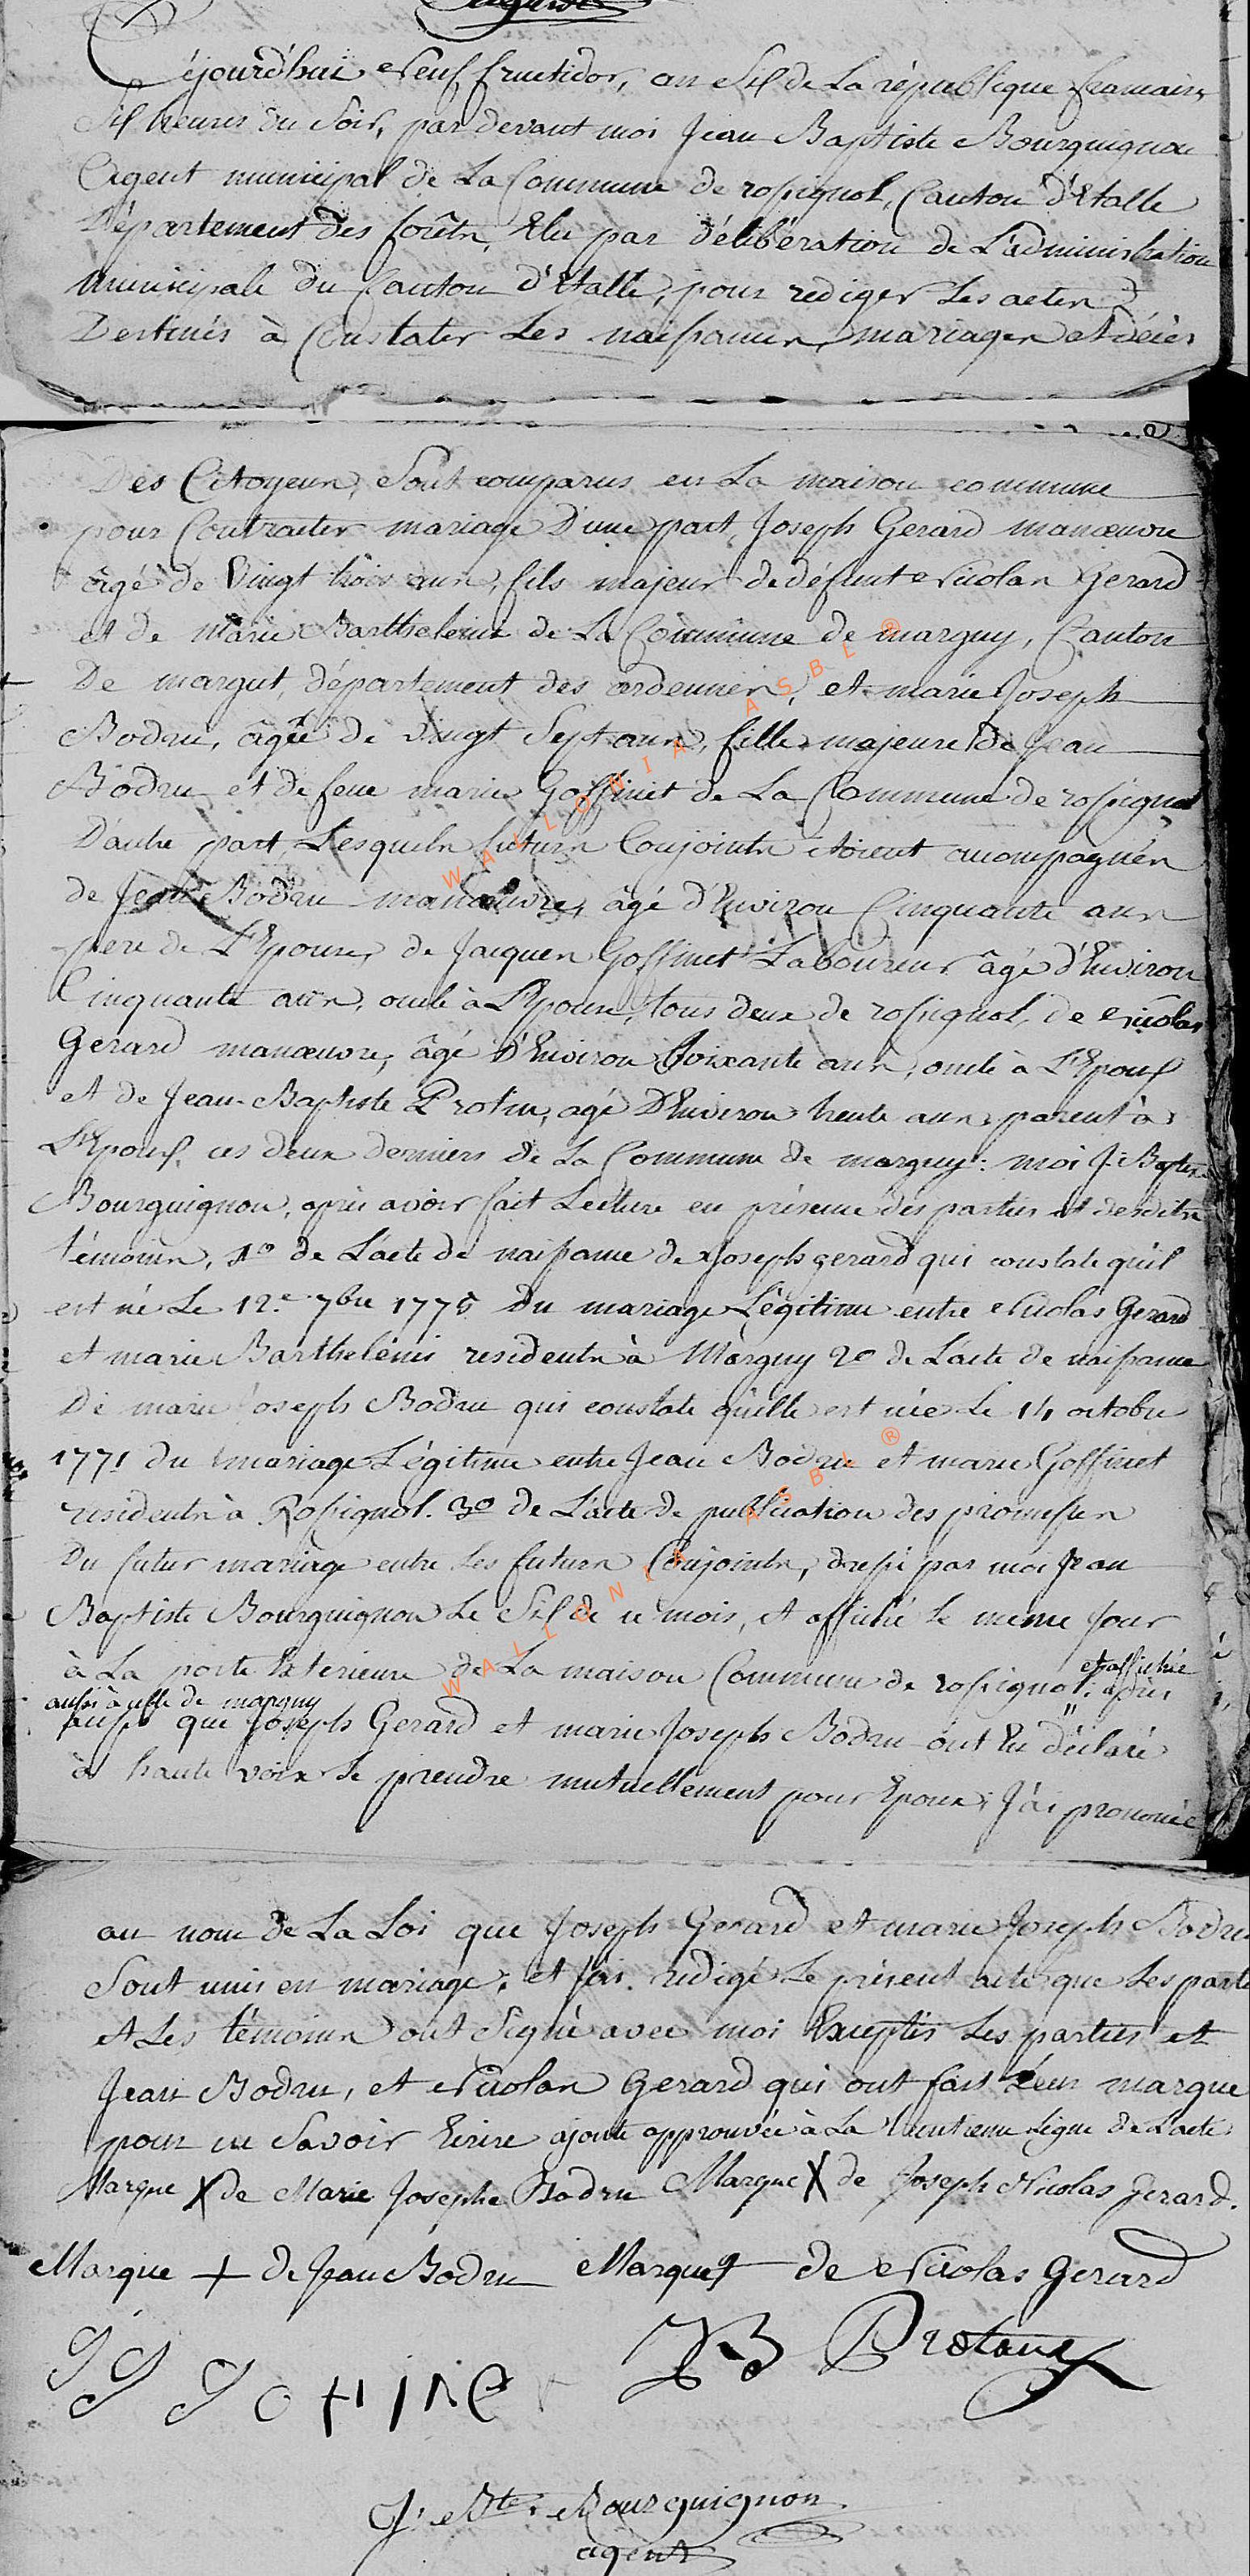 Cejourd'hui neuf fructidor, an six de La république francaise
Six heures du Soir, par devant moi Jean Baptiste Bourguignon
Agent municipal de La Commune de rossignol, Canton d'Etalle
Département des forêts, Elu par délibération de L'administration
municipale du Canton d'Etalle, pour rediger Les actes
Destinés à Constater Les naissances, mariages et décès
Des Citoyens, Sont comparus en La maison commune
pour Contracter mariage D'une part, Joseph Gerard manœuvre
âgé de Vingt trois ans, fils majeur de défunt Nicolas Gerard
et de Marie Barthelemi de La Commune de marguy, Canton
De margut, département des ardennes, et marie Joseph
Bodru, âgée de vingt Sept ans, fille majeure de Jean
Bodru et de feue marie Goffinet de La Commune de rossignol
D'autre part Lesquels futurs Conjoints étoient accompagnés
de Jean Bodru manœuvre, âgé d'Environ Cinquante ans
pere de L'Epouse, de Jacques Goffinet Laboureur âgé d'Environ
Cinquante ans, oncle à L'Epouse, tous deux de rossignol, de Nicolas
Gerard manœuvre, âgé D'Environ Soixante ans, oncle à L'Epoux
et de Jean-Baptiste Protin, agé D'Environ trente ans, parent à
L'Epoux, ces deux derniers de La Commune de marguy: moi J. Baptiste
Bourguignon, après avoir fait Lecture en présence des parties et desdits
témoins, 1º de L'acte de naissance de Joseph gerard qui constate qu'il
est né Le 12e 7bre 1775 Du mariage Légitime entre Nicolas Gerard
et marie Barthelémi residents à Marguy 2º de L'acte de naissance
De marie Joseph Bodru qui constate qu'elle est née Le 14 octobre
1771 du mariage Légitime entre Jean Bodru et marie Goffinet
residents à Rossignol. 3º de L'acte de publication des promesses
Du futur mariage entre Les futurs Conjoints, dressé par moi Jean
Baptiste Bourguignon Le Six de ce mois, et affiché le meme Jour
à La porte Exterieure de La maison Commune de rossignol; après
et affichée
aussi à celle de marguy
aussi que Joseph Gerard et marie Joseph Bodru ont Eu déclaré
à haute voix Se prendre mutuellement pour Epoux; J'ai prononcé
au nom de La Loi que Joseph Gerard et marie Joseph Bodru
Sont unis en mariage; et J'ai redigé Le présent acte que Les parties
et Les témoins ont Signé avec moi Exceptés Les parties et
Jean Bodru, et Nicolas Gerard qui ont fait Leur marque
pour ne Savoir Ecrire ajoute approuvée à La trentieme Ligne de L'acte
Marque X de Marie Josephe Bodru Marque X de Joseph Nicolas Gerard.
Marque + de Jean Bodru Marque + de Nicolas Gerard
JJ Gofinet JB Protin
J. Bte. Bourguignon
agent
WALLONIA ASBL ®
WALLONIA ASBL ®